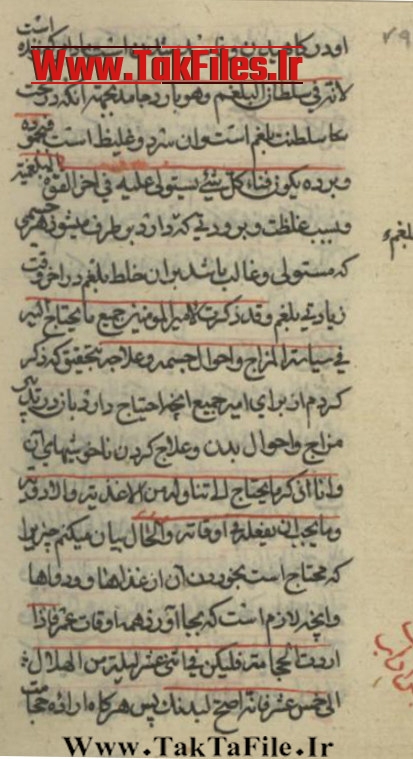 است
www.TakFiles.Ir
لانه في سلطان البلغم وهو بارد جامد بجهة آنکه در تحت
سلطنت بلغم است وان سرد و غلیظ است فبجموده
وبرده یکون فناء کل شیئ یستولی علیه في اخر القوة البلغمیة
و بسبب غلظت و برودتی که دارد بر طرف میشود هر جسمی
که مستولی و غالب باشد بر ان خلط بلغم در اخر وقت
زیادتی بلغم وقد ذکرت لامیر المومنین جمیع ما یحتاج الیه
في سیاسة المزاج واحوال جسمه وعلاجه بتحقیق که ذکر
کردم از برای امیر جمیع انچه احتیاج دارد باو در تدبیر
مزاج واحوال بدن و علاج کردن ناخوشیهای آن
وانا اذکر ما یحتاج الی تناوله من الاغذیة والادویة
وما یجب ان یفعله في اوقاته والحال بیان میکنم چیزیرا
که محتاج است بخوردن آن از غذاها و دواها
وانچه لازم است که بجا آورد در همه اوقات عمر فاذا
اردت الحجامة فلیکن في اثنی عشر لیلة من الهلال
الی خمس عشر فانه اصح لبدنک پس هر گاه اراده حجامت
بلغم
۷۹
Www.TakTaFile.Ir